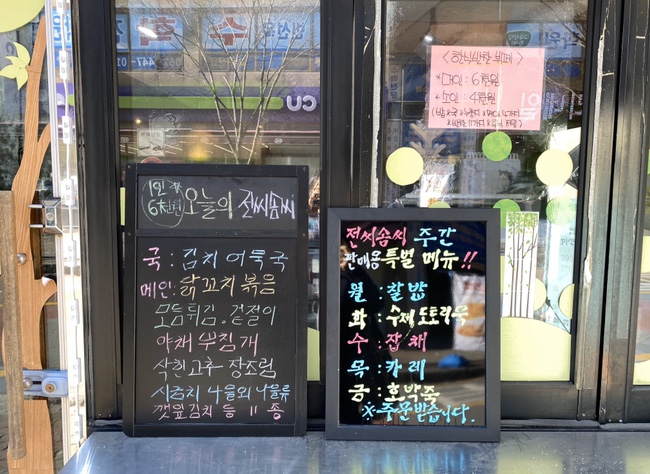 <한식반찬뷔페>
*대인: 6천원
*소인: 4천원
CU
1인
6천원
오늘의 전씨솜씨
국: 김치 어묵국
메인: 닭꼬치 볶음
모듬튀김. 겉절이
야채 부침개
삭힌고추 장조림
시금치 나물외 나물류
깻잎김치 등 11종
전씨솜씨 주간
판매용 특별 메뉴!!
월 : 찰밥
화 : 수제 도토리묵
수 : 잡채
목 : 카레
금 : 호박죽
※주문받습니다.